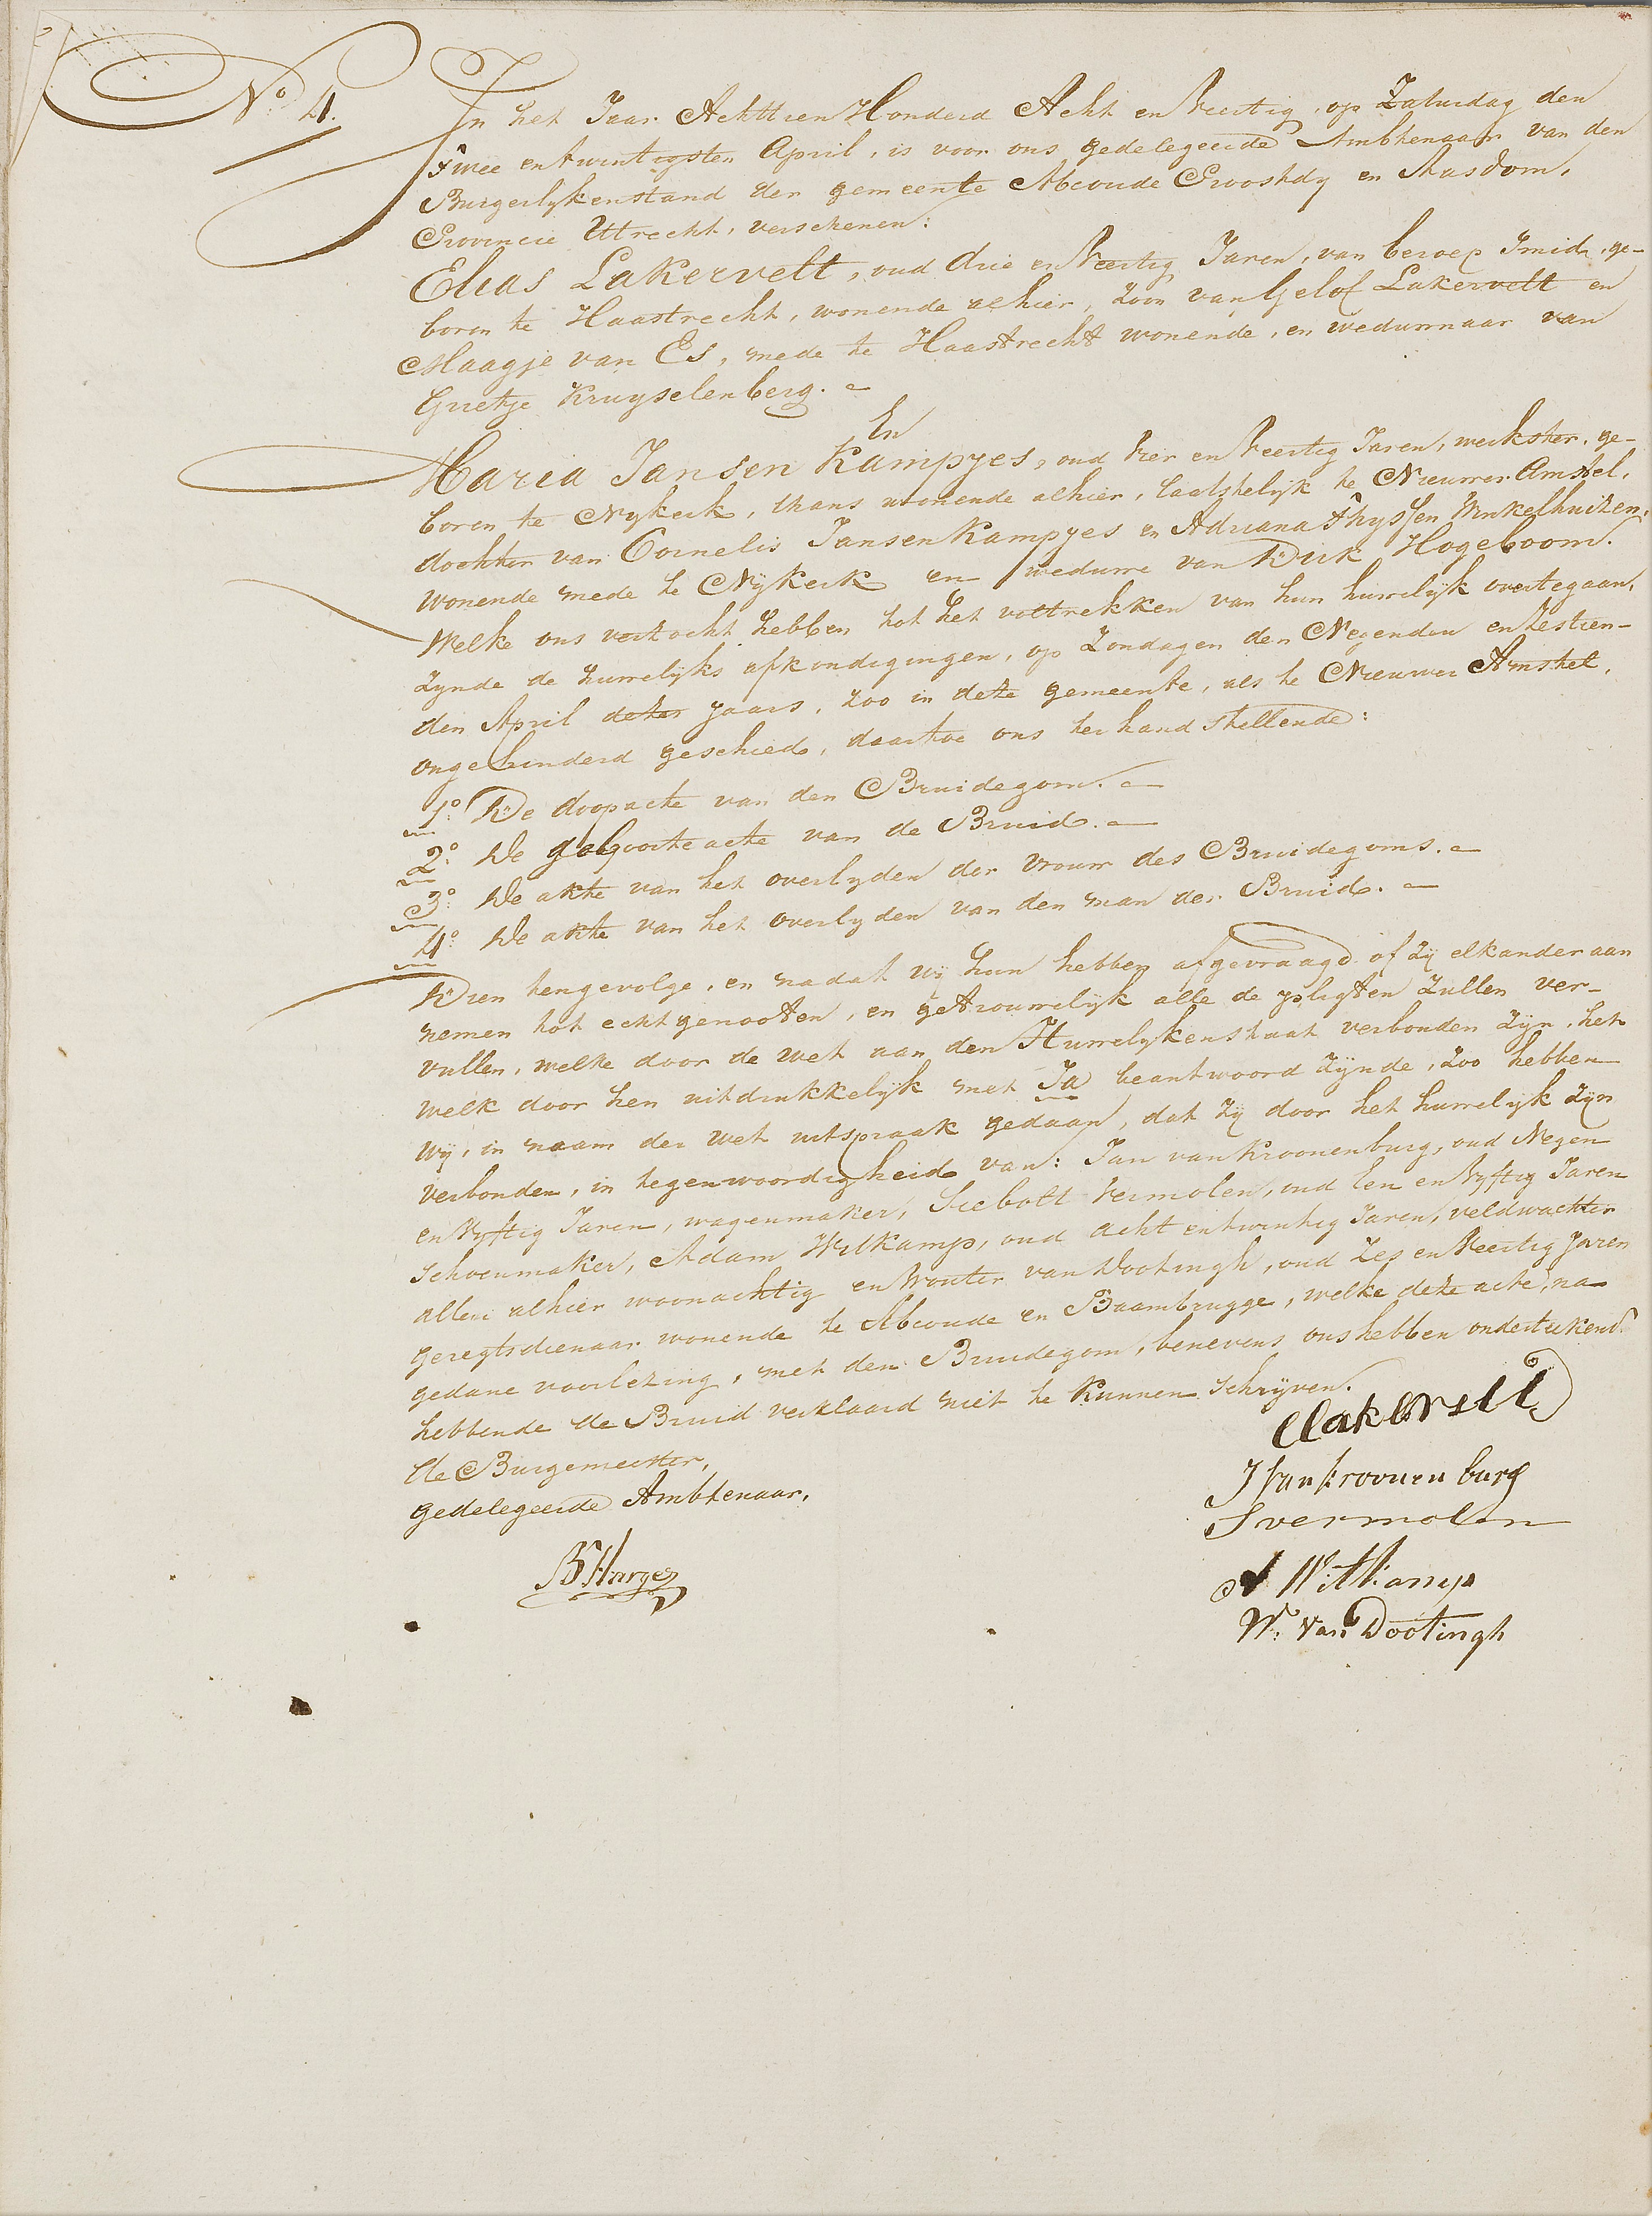 No 4.
In het Jaar Achttien Honderd Acht en Veertig, op Zaturdag den
Twee en twintigsten April, is voor ons gedelegeerde Ambtenaar van den
Burgerlykenstand der gemeente Abcoude Proostdy en Aasdom,
Provincie Utrecht, verschenen:
Elias Lakervelt, oud drie en Veertig Jaren, van beroep Smid, ge-
boren te Haastrecht, wonende alhier, Zoon van Gelof Lakervelt en
Maagje van Es, mede te Haastrecht wonende, en wedunnaar van
Grietje Kruyselenberg.
En
Maria Jansen Kampjes, oud Vier en Veertig Jaren, werkster, ge-
boren te Nykerk, thans wonende alhier, laatstelijk te Nieuwer Amstel,
dochter van Cornelis Jansen Kampjes en Adriana Thyssen Winkelhuizen,
wonende mede te Nijkerk en weduwe van Dirk Hogeboom.
Welke ons verzocht hebben tot het voltrekken van hun huwelijk overtegaan,
Zynde de huwelijks afkondigingen, op Zondagen den Negenden en Zestien-
den April dezer jaars, Zoo in deze gemeente, als te Nieuwer Amstel,
ongehinderd geschied, daartoe ons ter hand stellende:
1o. De doopacte van den Bruidegom.
2o. De geboorte acte van de Bruid.
3o. De akte van het overlyden der Vrouw des Bruidegoms.
4o. De akte van het overlyden van den man der Bruid.
Dien tengevolge, en nadat wij hun hebben afgevraagd of Zij elkander aan
nemen tot echtgenooten, en getrouwelijk alle de pligten Zullen ver-
vullen, welke door de wet aan den Huwelykenstaat verbonden Zijn, het
welk door hen uitdrukkelijk met Ja beantwoord Zijnde, Zoo hebben
wij, in naam der wet uitspraak gedaan, dat Zij door het huwelijk Zijn
verbonden, in tegenwoordigheid van: Jan van Kroonenburg, oud Negen
en Vyftig Jaren, wagenmaker, Siebolt Vermolen, oud Een en Vyftig Jaren
Schoenmaker, Adam Witkamp, oud acht en twintig Jaren, veldwachter
allen alhier woonachtig en Wouter van Dootingh, oud Zes en Veertig Jaren
geregtsdienaar wonende te Abcoude en Baambrugge, welke deze acte, na
gedane voorlezing, met den Bruidegom, benevens ons hebben ondertekend
hebbende de Bruid verklaard niet te kunnen Schrijven.
De Burgemeester,
gedelegeerde Ambtenaar,
ELakervelt
J van kroonen burg
S vermolen
A Witkamp
W. van Dootingh